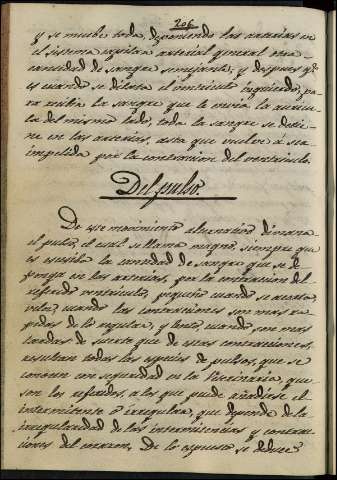 206
y se mueve toda, deponiendo las arterias en
el sistema capilar arterial general una
cantidad de sangre semejante; y despues qe.
es cuando se dilata el ventriculo izquierdo, pa-
ra recibir la sangre que le envia la auricu-
la del mismo lado, toda la sangre se detie-
ne en las arterias, asta que vuelve á ser
impelida por la contracion del ventriculo.
Del pulso.
De ese movimiento alternativo dimana
el pulso, el cual se llama magno, siempre que
es escesiva la cantidad de sangre que se de-
ponga en las arterias, por la contracion del
referido ventriculo, pequeño cuando se
vela, cuando las contracciones son mas ra-
pidas de lo regular, y lento, cuando son mas
tardas de suerte que de estas contracciones,
resultan todas las especies de pulsos, que se
conocen con seguridad en la Veterinaria, que
son los referidos, a los que puede añadirse el
intermitente e irregular, que depende de la
irregularidad de las intermitencias y contrac-
ciones del corazon. De lo espuesto se deduce